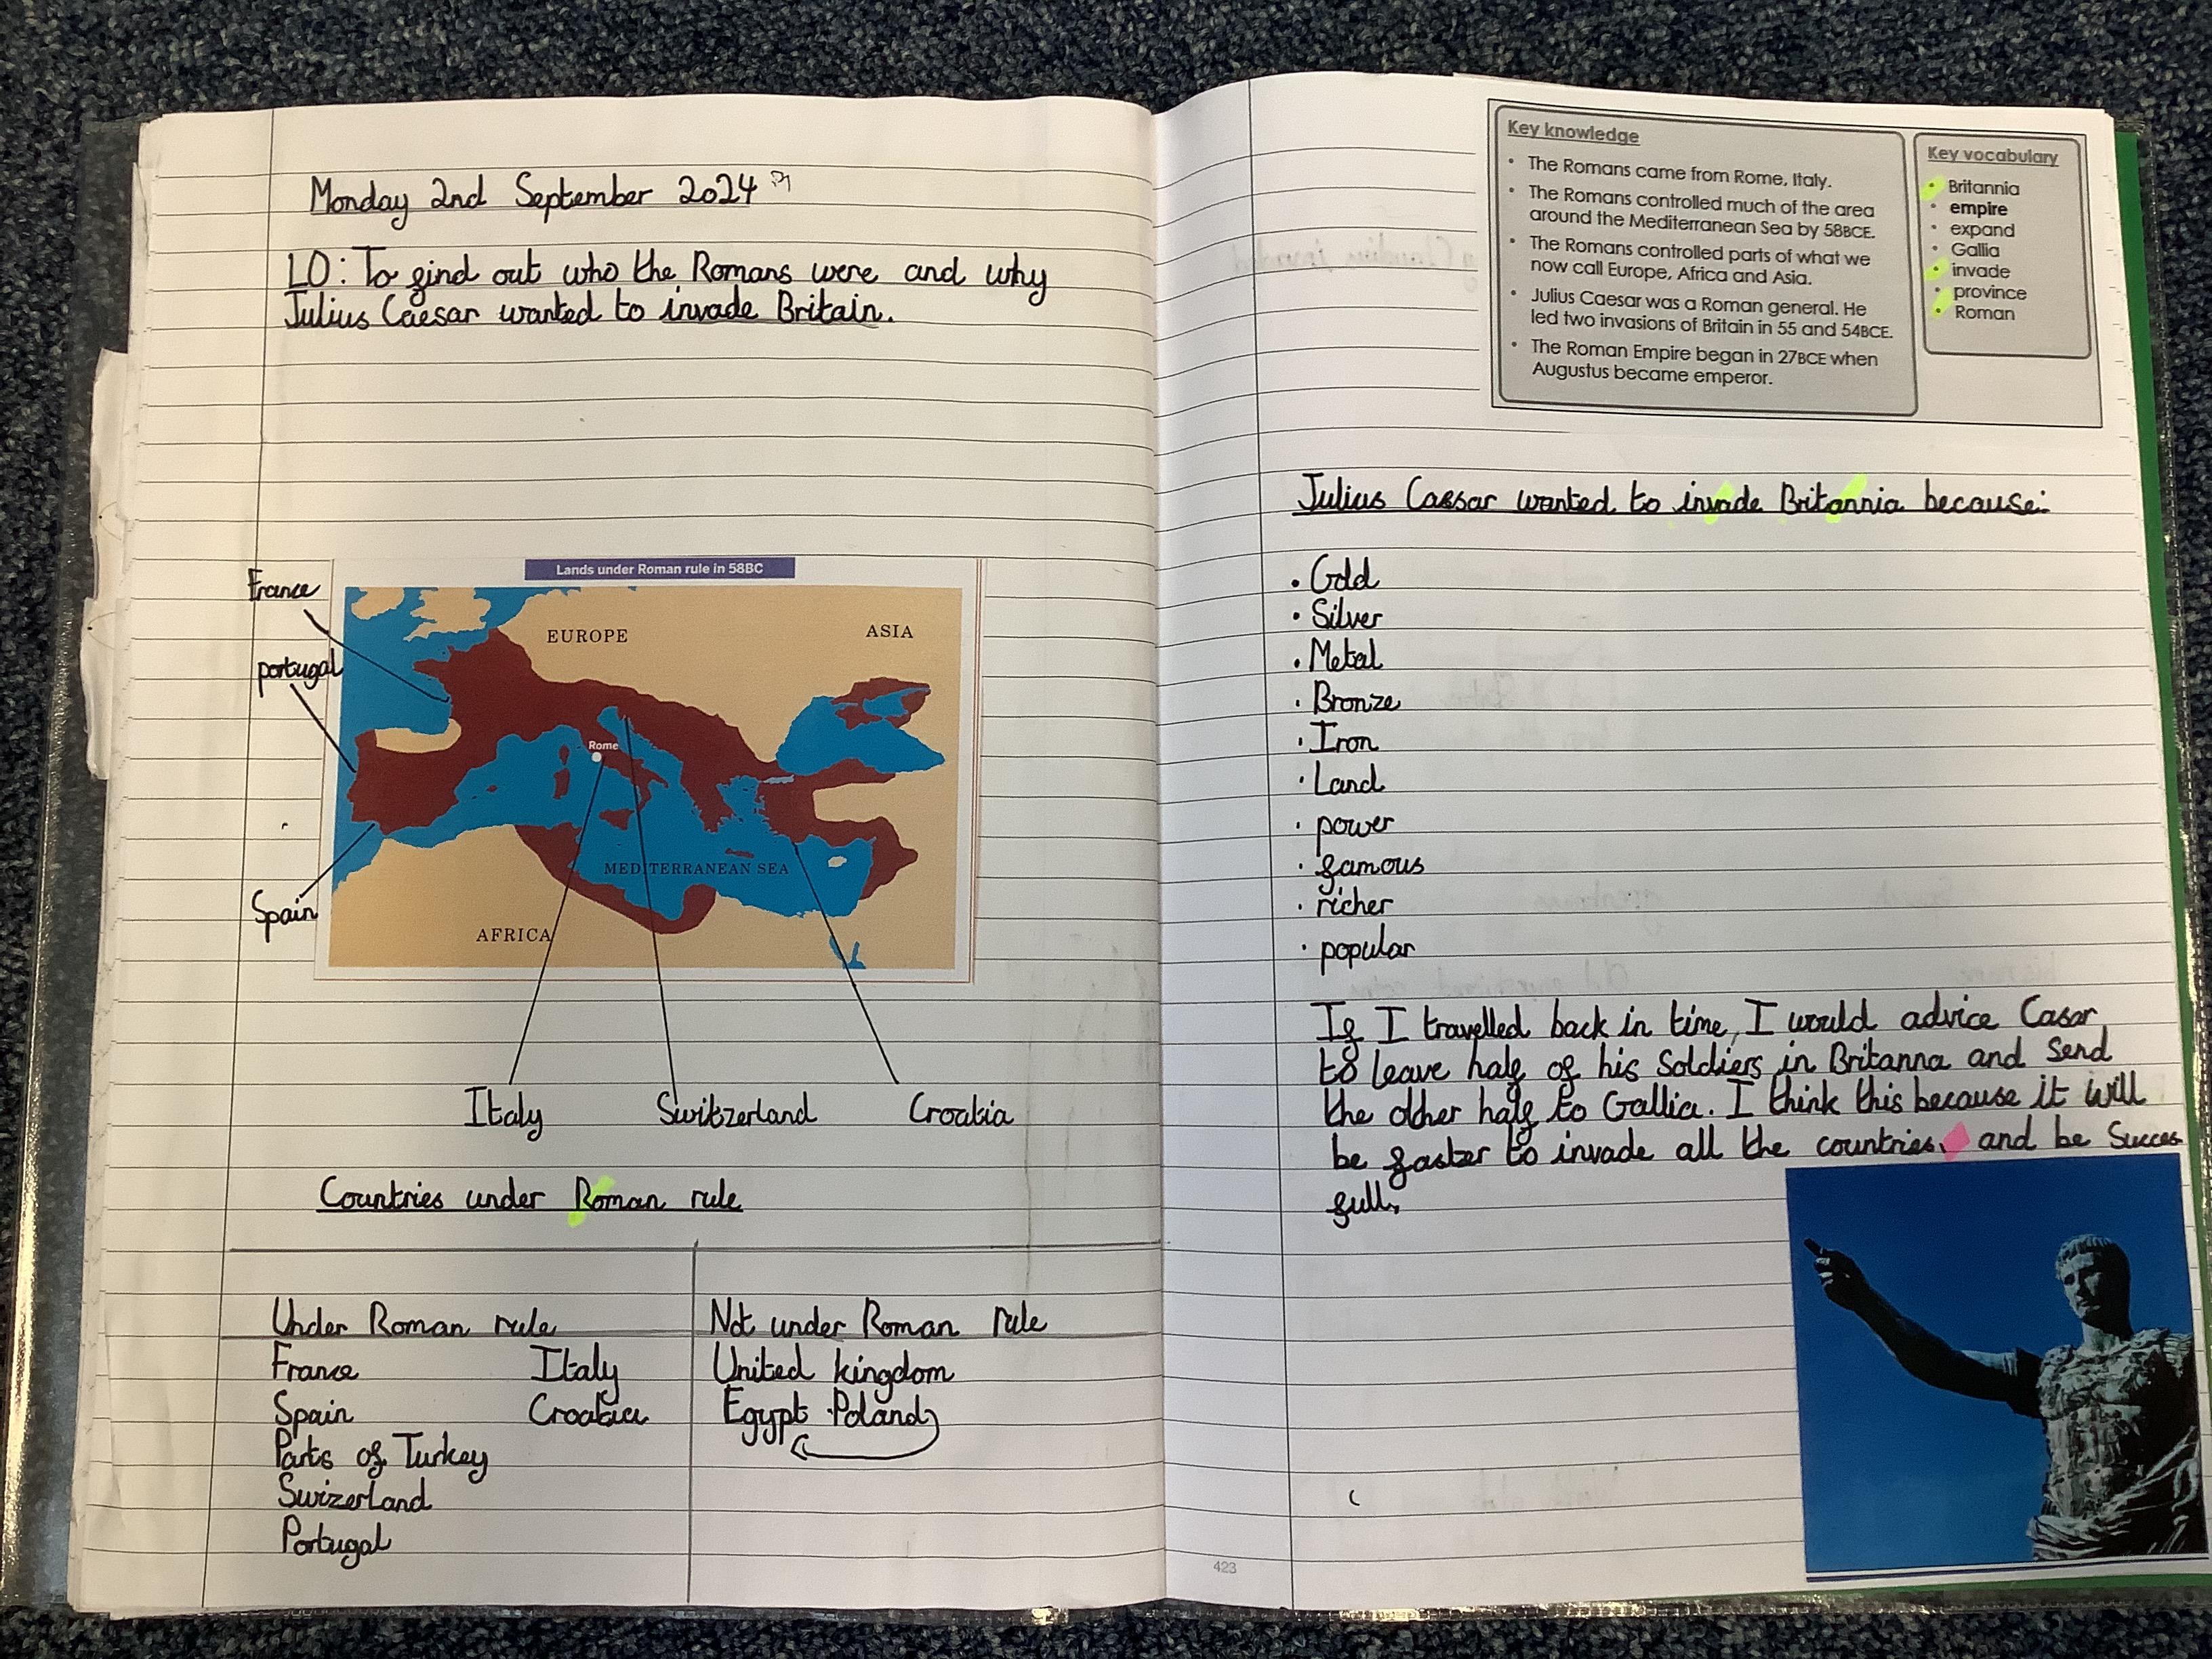 Monday 2nd September 2024
LO: To find out who the Romans were and why
Julius Caesar wanted to invade Britain.
Lands under Roman rule in 58BC
France
EUROPE
ASIA
portugal
Rome
MEDITERRANEAN SEA
Spain
AFRICA
Italy Switzerland Croatia
Countries under Roman rule
Under Roman rule Not under Roman rule
France Italy United kingdom
Spain Croatia Egypt Poland
Parts of Turkey
Swizerland
Portugal
Key knowledge
• The Romans came from Rome, Italy.
• The Romans controlled much of the area
around the Mediterranean Sea by 58BCE.
• The Romans controlled parts of what we
now call Europe, Africa and Asia.
• Julius Caesar was a Roman general. He
led two invasions of Britain in 55 and 54BCE.
• The Roman Empire began in 27BCE when
Augustus became emperor.
Key vocabulary
• Britannia
• empire
• expand
• Gallia
• invade
• province
• Roman
Julius Caesar wanted to invade Britannia because:
• Gold
• Silver
• Metal
• Bronze
• Iron
• Land
• power
• famous
• richer
• popular
If I travelled back in time, I would advice Casar
to leave half of his Soldiers in Britanna and send
the other half to Gallia. I think this because it will
be faster to invade all the countries, and be Succes
full.
423